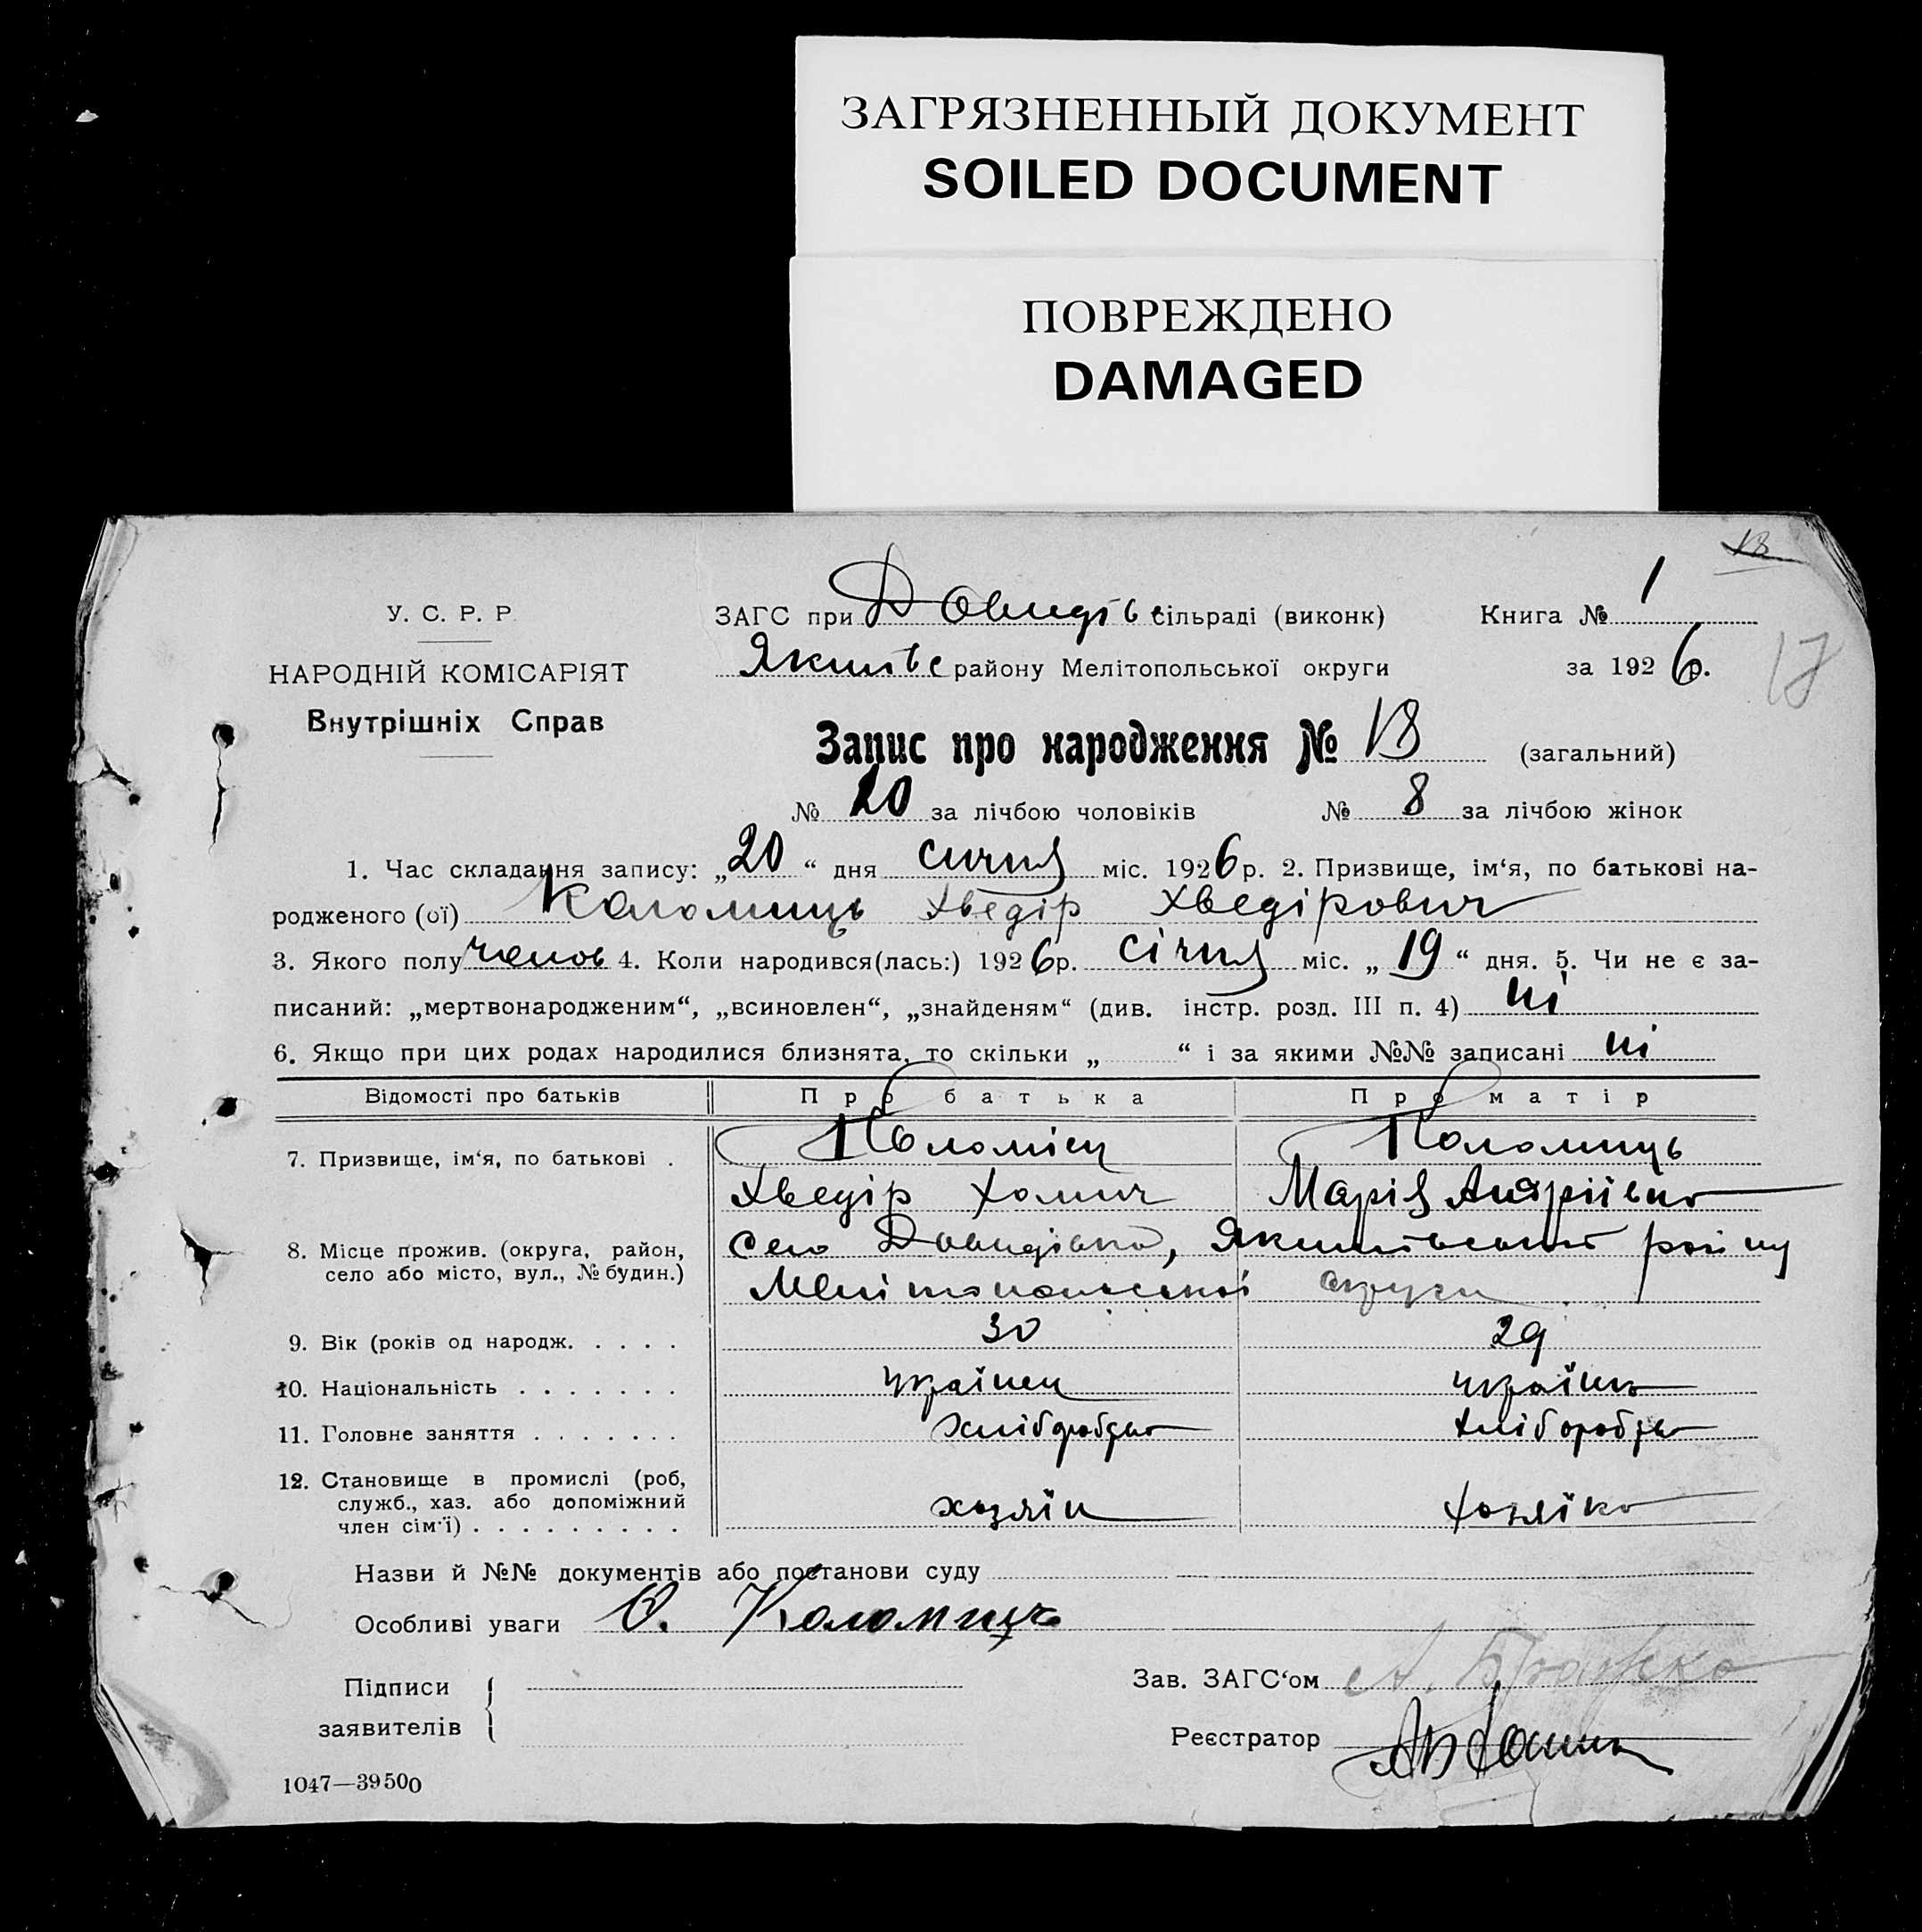 ЗАГРЯЗНЕННЫЙ ДОКУМЕНТ
SOILED DOCUMENT
ПОВРЕЖДЕНО
DAMAGED
18
У. С. Р. Р.
НАРОДНІЙ КОМІСАРІЯТ
Внутрішніх Справ
ЗАГС при Довидів сільраді (виконк)
Книга № 1
Якимівс району Мелітопольської округи
за 1926 р.
17
Запис про народження № 18 (загальний)
№ 10 за лічбою чоловіків № 8 за лічбою жінок
1. Час складання запису: „20“ дня сичня міс. 1926 р. 2. Призвище, ім‘я, по батькові на-
родженого (ої) Коломиць Хведір Хведірович
3. Якого полу чолов 4. Коли народився(лась:) 1926 р. січня міс. „19“ дня. 5. Чи не є за-
писаний: „мертвонародженим“, „всиновлен“, „знайденям“ (див. інстр. розд. III п. 4) ні
6. Якщо при цих родах народилися близнята, то скільки „ “ і за якими №№ записані ні
Відомості про батьків Про батька Про матір
7. Призвище, ім‘я, по батькові . Коломіец Коломиць
Хведір Хомич Марія Андріівна
8. Місце прожив. (округа, район, село або місто, вул., № будин.) село Довидівка, Якимівський району
Мелітопольськоі округи
9. Вік (років од народж. . . . . 30 29
10. Національність . . . . . . . українец україика
11. Головне заняття . . . . . . . хлібороб хлібороб
12. Становище в промислі (роб,
служб., хаз. або допоміжний
член сім‘ї) . . . . . . . . . хозяїн хозяїка
Назви й №№ документів або постанови суду
Особливі уваги О. Коломиць
Підписи
заявителів
Зав. ЗАГС‘ом А.
Реєстратор
1047—39500